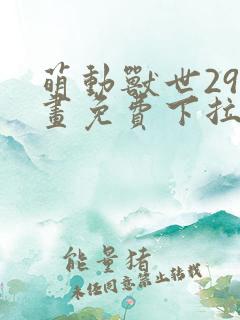 萌動獸世29
畫免費下拉
能量猪
未经同意禁止转载